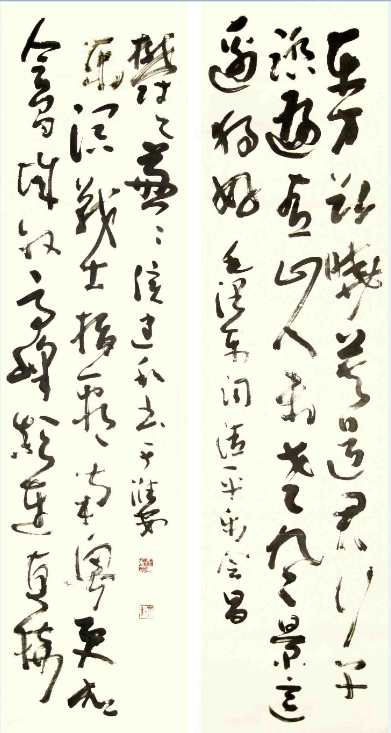 东方欲晓莫道君行早
踏遍青山人未老风景这
边独好
毛泽东词清平乐会昌
会昌城外高峰颠连直接
东溟战士指看南粤更加
郁々葱々
书于淮安